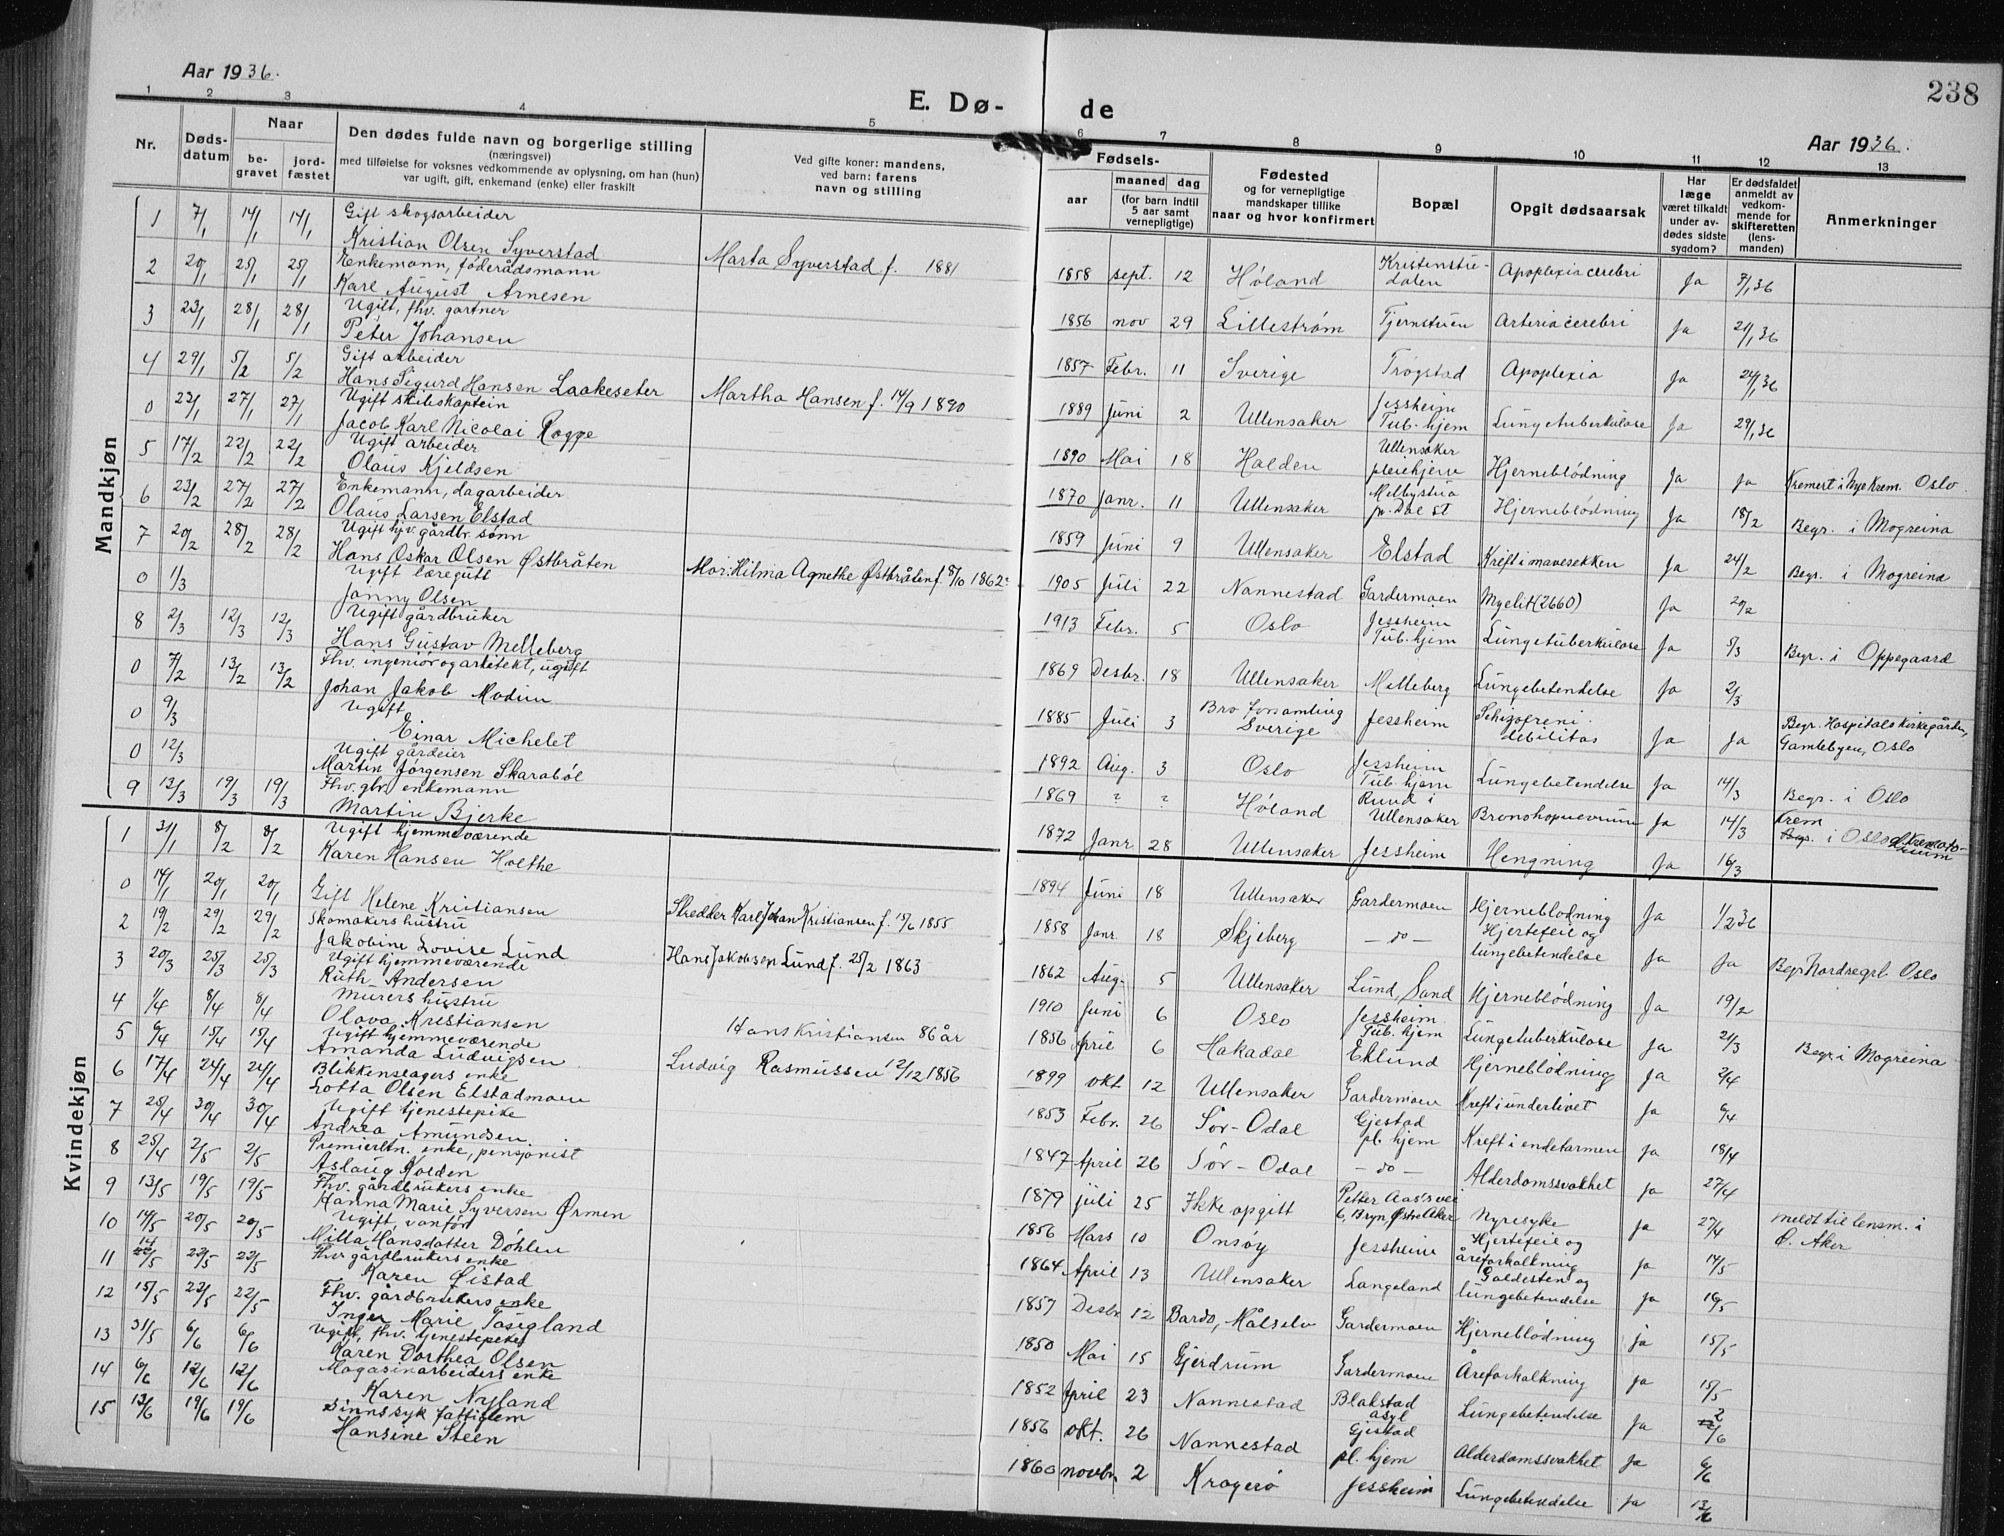 238
Aar 1936.
E. Dø-de
Aar 1936.
1 2 3 4 5 6 7 8 9 10 11 12 13
Nr.
Døds-datum
Naar
be-gravet
jord-fæstet
Den dødes fulde navn og borgerlige stilling
(næringsvei)
med tilføielse for voksnes vedkommende av oplysning, om han (hun)
var ugift, gift, enkemand (enke) eller fraskilt
Ved gifte koner: mandens,
ved barn: farens
navn og stilling
Fødsels-
aar
maaned dag
(for barn indtil
5 aar samt
vernepligtige)
Fødested
og for vernepligtige
mandskaper tillike
naar og hvor konfirmert
Bopæl
Opgit dødsaarsak
Har
læge
været tilkaldt
under av-
dødes sidste
sygdom?
Er dødsfaldet
anmeldt av
vedkom-
mende for
skifteretten
(lens-
manden)
Anmerkninger
Mandkjøn
1 7/1 14/1 14/1 Gift skogsarbeider
Kristian Olsen Syverstad Marta Syverstad f. 1881 1858 sept. 12 Høland Apoplexia cerebri Ja 7/1 36
2 20/1 25/1 25/1 Enkemann, föderådsmann
Karl August Arnesen 1856 nov 29 Lillestrøm Tjernstuen Arteria cerebri Ja 21/1 36
3 23/1 28/1 28/1 Ugift, fhv. gartner
Peter Johansen 1857 Febr. 11 Sverige Trøgstad Apoplexia Ja 24/1 36
4 29/1 5/2 5/2 Gift arbeider
Hans Sigurd Hansen Laakeseter Martha Hansen f. 14/9 1890 1889 Juni 2 Ullensaker Jessheim Tub. hjem Lungetuberkulose Ja 29/1 36
0 23/1 27/1 27/1 Ugift skibskaptein
Jacob Karl Nicolai Rogge 1890 Mai 18 Halden Ullensaker pleiehjem Hjerneblödning Ja Ja Kremert i Nye Krem. Oslo.
5 17/2 22/2 22/2 Ugift arbeider
Olaus Kjeldsen 1870 Janr. 11 Ullensaker Melbystua pr. Dal st Hjerneblödning Ja 18/2 Begr. i Mogreina
6 23/2 27/2 27/2 Enkemann, dagarbeider
Olaus Larsen Elstad 1859 Juni 9 Ullensaker Elstad Kreft i mavesekken Ja 24/2 Begr. i Mogreina
7 20/2 28/2 28/2 Ugift hjv. gårdbr. sønn
Hans Oskar Olsen Østbråten Mor: Hilma Agnethe Østbråten f. 8/10 1862 1905 Juli 22 Nannestad Gardermoen Myelit (2660) Ja 20/2
0 1/3 Ugift læregutt
Jonny Olsen 1913 Febr. 5 Oslo Jessheim Tub. hjem Lungetuberkulose Ja 5/3 Begr. i Oppegaard
8 2/3 12/3 12/3 Ugift gårdbruker
Hans Gustav Melleberg 1869 Desbr. 18 Ullensaker Melleberg Lungebetendelse Ja 2/3
0 7/2 13/2 13/2 Fhv. ingeniör og arkitekt, ugift
Johan Jakob Modin 1885 Juli 3 Bro Forsamling Sverige Jessheim Schizofreni debilitas Ja Ja Begr. Hospitals kirkegården, Gamlebyen, Oslo
0 9/3 Ugift
Einar Michelet 1892 Aug. 3 Oslo Jessheim Tub. hjem Lungebetendelse Ja 14/3 Begr. i Oslo
0 12/3 Ugift gårdeier
Martin Jørgensen Skaraböl 1869 ? ? Høland Ruud i Ullensaker Ja 14/3 Krem. i Oslo Krematorium
9 13/3 19/3 19/3 Fhv. gbr. enkemann
Martin Bjerke 1872 Janr. 28 Ullensaker Jessheim Hengning Ja 16/3
Kvindekjøn
1 31/1 8/2 8/2 Ugift hjemmeværende
Karen Hansen Holthe 1894 Juni 18 Ullensaker Gardermoen Hjerneblödning Ja 1/2 36
0 14/1 20/1 20/1 Gift Helene Kristiansen Skredder Karl Johan Kristiansen f. 15/6 1855 1858 Janr. 18 Skjeberg - do - Hjertefeil og lungebetendelse Ja Ja Begr. Nordre grl. Oslo
2 19/2 29/2 29/2 Skomakers hustru
Jakobine Lovise Lund Hans Jakobsen Lund f. 25/2 1863 1862 Aug. 5 Ullensaker Lund, Sand Hjerneblödning Ja 19/2
3 20/3 25/3 25/3 Ugift hjemmeværende
Ruth Andersen 1910 Juni 6 Oslo Jessheim Tub. hjem Lungetuberkulose Ja 21/3 Begr. i Mogreina
4 1/4 8/4 8/4 Murers hustru
Olava Kristiansen Hans Kristiansen 86 år 1856 April 6 Hakadal Eklund Hjerneblödning Ja 2/4
5 6/4 15/4 15/4 Ugift hjemmeværende
Amanda Ludvigsen Ludvig Rasmussen 12/12 1856 1899 okt 12 Ullensaker Gardermoen Kreft i underlivet Ja 6/4
6 17/4 24/4 24/4 Blikkenslagers enke
Lotta Olsen Elstadmoen 1853 Febr. 26 Sör-Odal Gjestad pl. hjem Kreft i endetarmen Ja 18/4
7 25/4 30/4 30/4 Ugift tjenestepike
Andrea Amundsen. 1847 April 26 Sör-Odal - do - Alderdomssvakhet Ja 27/4
8 25/4 2/5 2/5 Premierltn. enke, pensjonist
Aslaug Kolden 1879 juli 25 Ikke opgitt Petter Aas's vei 6, Bryn, Østre Aker Nyresyke Ja 27/4 Meldt til lensm. i Ø. Aker
9 13/5 19/5 19/5 Fhv. gårdbrukers enke
Hanna Marie Syversen Ørmen 1856 Mars 10 Onsøy Jessheim Hjertefeil og åreforkalkning Ja 14/5
10 14/5 20/5 20/5 Ugift, vanför
Milla Hansdatter Döhlen 1864 April 13 Ullensaker Langeland Galdesten og lungebetendelse Ja 16/5
11 14/5 22/5 22/5 Fhv gårdbrukers enke
Karen Øistad 1857 Desbr 12 Bardo, Målselv Gardermoen Hjerneblödning ja 15/5
12 15/5 22/5 22/5 Fhv. gårdbrukers enke
Inger Marie Tasigland 1850 Mai 15 Gjerdrum Gardermoen Åreforkalkning Ja 15/5
13 31/5 6/6 6/6 Ugift, fhv. tjenestepike
Karen Dorthea Olsen 1852 April 23 Nannestad Blakstad asyl Lungebetendelse Ja 2/6
14 6/6 12/6 12/6 Magasinarbeiders enke
Karen Nyland 1856 okt. 26 Nannestad Gjestad pl. hjem Alderdomssvakhet Ja 6/6
15 13/6 19/6 19/6 Sinnssyk fattiglem
Hansine Steen 1860 novbr. 2 Kragerø Jessheim Lungebetendelse Ja 13/6